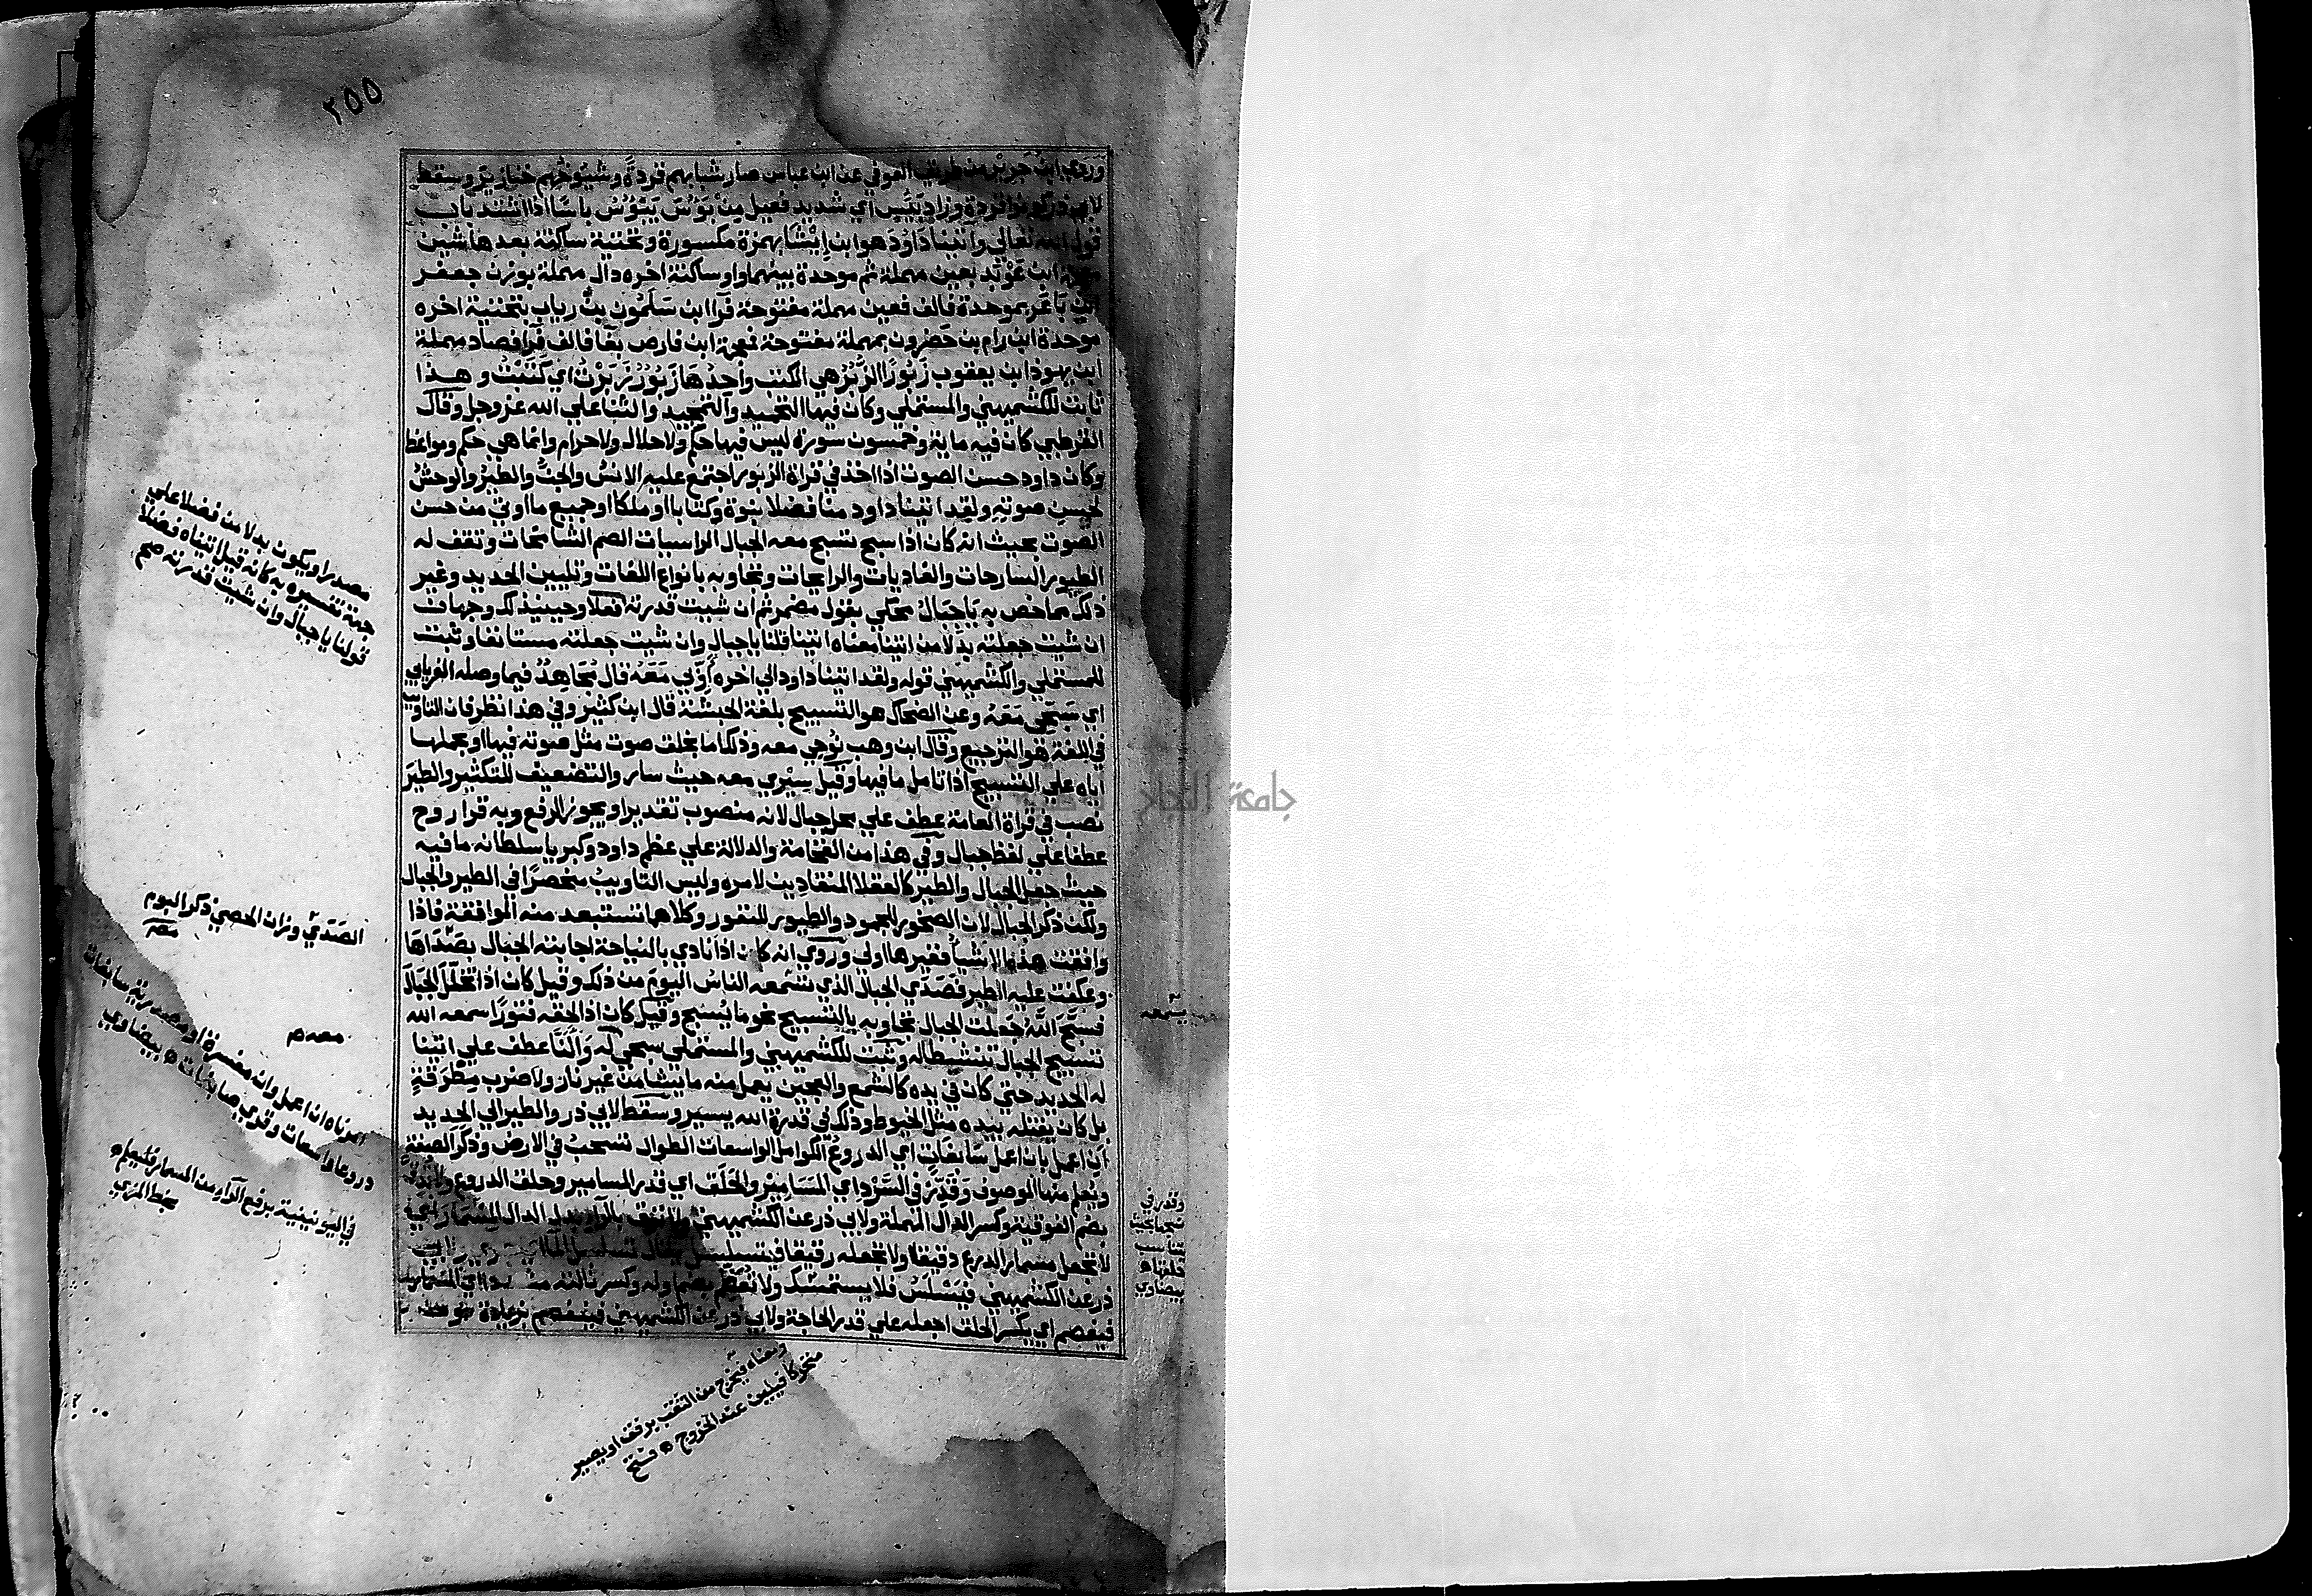 ٢٥٥
وروي ابن جرير من طريق العوفي عن ابن عباس صار شبابهم قردة وشيوخهم خنازير وسقط
لابي ذر كونوا قردة وزاد بئيس اي شديد فعيل من بَؤُسَ يَبْؤُسُ باسًا اذا اشتد باب
قول الله تعالي وآتينا داود هو ابن اِيْشَا بهمزة مكسورة وتحتية ساكنة بعدها شين
معجمة ابن عَوْبَد بعين مهملة ثم موحدة بينهما واو ساكنة اخره دال مهملة بوزن جعفر
ابن باعَر بموحدة فالف فعين مهملة مفتوحة فرا ابن سَلَمُون بن رياب بتحتية اخره
موحدة ابن رام بن حضرون بمهملة مفتوحة فمعجمة ابن فارص بفا فالف فرا فصاد مهملة
ابن يهوذا بن يعقوب زَبُورًا الزُّبُرُ هي الكتب واحِدُها زَبُورٌ زَبَرْتُ اي كَتَبْتُ وهذا
ثابت للكشميهني والمستملي وكان فيها التحميد والتمجيد والثنا علي الله عز وجل وقال
القرطبي كان فيه ماية وخمسون سورة ليس فيها حكم ولا حلال ولا حرام وانما هي حكم ومواعظ
وكان داود حسن الصوت اذا اخذ في قراة الزبور اجتمع عليه الانسُ والجنُّ والطيرُ والوحشُ
لحسن صوته ولقد اتينا داود منا فضلا بنوة وكتابا او ملكا او جميع ما اوتي من حسن
الصوت بحيث انه كان اذا سبح تسبح معه الجبال الراسيات الصم الشامخات وتقف له
الطيور السارحات والغاديات والرايحات وتجاوبه بانواع اللغات وتليين الحديد وغير
ذلك مما خص به يَاجِبَالُ محكي بقول مضمر ثم ان شيت قدرته فعلا وحينيذ لك وجهات
ان شيت جعلته بدلا من اتينا معناه اتينا قلنا يا جبال وان شيت جعلته مستانفا وثبت
للمستملي والكشميهني قوله ولقد اتينا داود الي اخره أَوِّبي مَعَهُ قال مُجَاهِدٌ فيما وصله الفريابي
اي سَبِّحِي مَعَهُ وعن الضحاك هو التسبيح بلغة الحبشة قال ابن كثير وفي هذا نظر فان التاويب
في اللغة هو الترجيع وقال ابن وهب نُوحِي معه وذلك اما بخلق صوت مثل صوته فيها او بحملها
اياه علي التسبيح اذا تامل ما فيها وقيل سِيْرِي معه حيث سار والتضعيف للتكثير والطيرَ
نصب في قراة العامة عطف علي محل جبال لانه منصوب تقديرا ويجوز الرفع وبه قرا روح
عطفا علي لفظ جبال وفي هذا من الفخامة والدلالة علي عظم داود وكبريا سلطانه ما فيه
حيث جعل الجبال والطير كالعقلا المنقادين لامره وليس التاويب منحصرًا في الطير والجبال
ولكن ذكر الجبال لان الصخور للجمود والطيور للنفور وكلاهما تستبعد منه الموافقة فاذا
وافقت هذه الاشيا فغيرها اولي وروي انه كان اذا نادي بالنياحة اجابته الجبال بصَدَاهَا
وعكفت عليه الطير فصَدَي الجبال الذي نسمعه الناس اليومَ من ذلك وقيل كان اذا تخلل الجبال
فسبَّحَ اللهَ جَعَلت الجبال تجاوبه بالتسبيح نحو ما يُسبح وقيل كان اذا لحقه فتورٌ اسمعه الله
تسبيح الجبال تنشيطا له وثبت للكشميهني والمستملي سبحي له وَأَلَنَّا عطف علي اتينا
له الحديد حتي كان في يده كالشمع والعجين يعمل منه ما يشا من غير نار ولا ضرب مِطْرَقةٍ
بل كان يفتله بيده مثل الخيوط وذلك في قدرة الله يسير وسقط لابي ذر والطير الي الحديد
أَنِ اعمل بان اعمل سَابِغَاتٍ اي الدروعُ الكوامل الواسعات الطوال تسحبُ في الارض وذكر الصفة
ويعلم منها الموصوف وَقَدِّرْ في السَّرْدِ اي المَسَامِيرُ والحَلَقُ اي قدر المسامير وحلق الدروع ولا
بضم الفوقية وكسر الدال المهملة ولابي ذر عن الكشميهني ولا ترق بالراء بدل الدال المسمار
لا تجعل مسمار الدرع دقيقا ولا تجعله رقيقا فيتسلسل يقال تسلسل الماء
ذر عن الكشميهني فيَسْلَسُ فلا يستمسك ولا تُعَظِّم بضم اوله وكسر ثالثه مشددا اي المسمار
فيفصم اي يكسر الحلق اجعله علي قدر الحاجة ولابي ذر عن الكشميهني فينفصم بزيادة نون
مصدرا ويكون بدلا من فضلا علي
جهة تفسيره به كانه قيل اتيناه فضلا
قولنا يا جبال وان شيت قدرته صح
الصَدَيُ وزان الحصي ذكر البوم
معه م
امرناه ان اعمل وان مفسرة او مصدرية سابغات
دروعا واسعات وقري صابغات ه بيضاوي
في اليونينية برفع الراء من المسامير فليعلم ه
بخط المزي
يسمعه
وقدر في
نسجها بحيث
تتناسب
حلقاتها
بيضاوي
ومعناه فيخرج من الثقب برفق او يصير
متحركا فيلين عند الخروج ه نسخة
جامعة النجاح